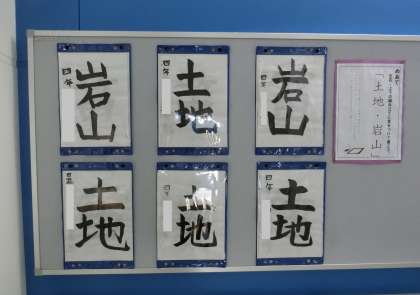 岩山
四年
土地
四年
岩山
四年
めあて
「土地・岩山」
土地
四年
土地
四年
土地
四年